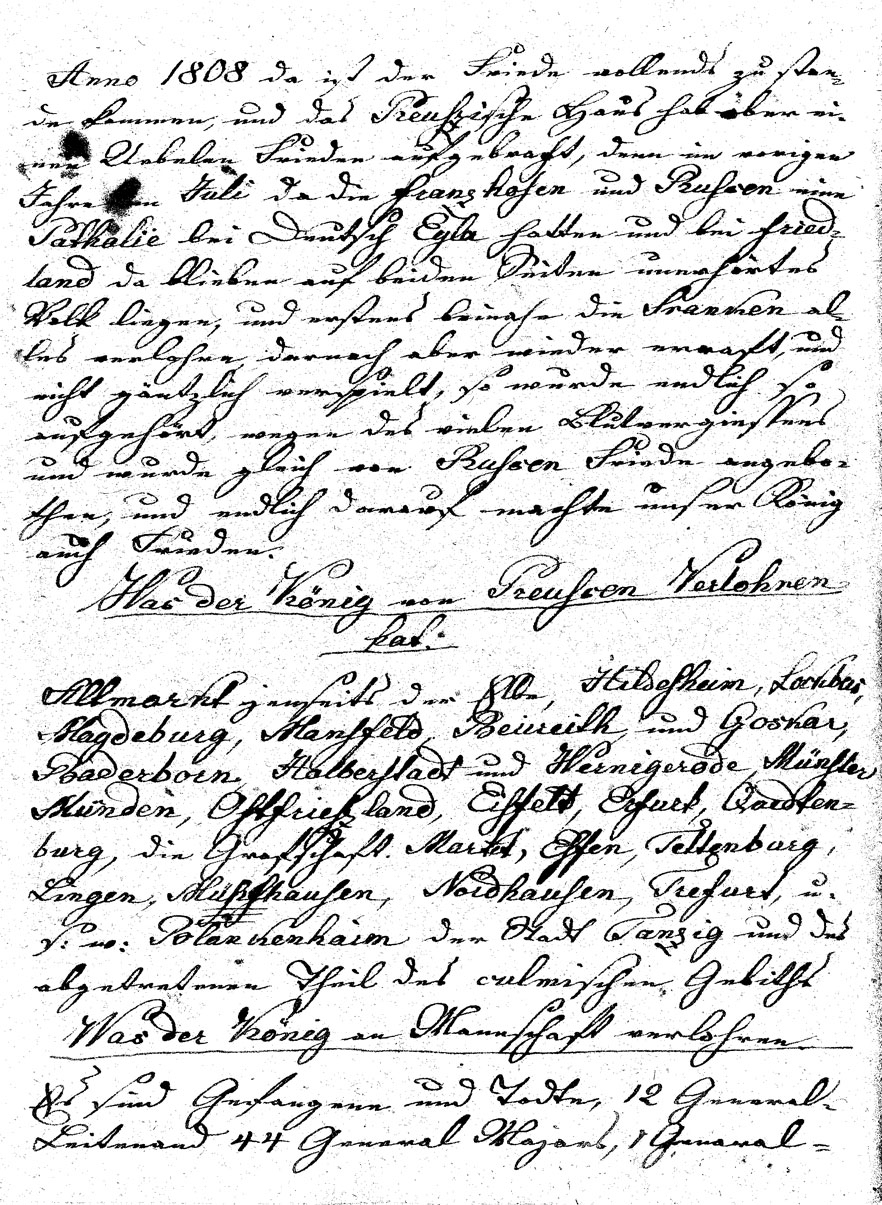 Anno 1808 da ist der Friede vollends zu stan-
de kommen, und das Preussische Haus hat aber ei-
nen Uebelen Frieden aufgebracht, denn im vorigen
Jahre im Juli da die franzhosen und Russen eine
Pathalie bei Deutsch Eyla hatten und bei fried-
land da blieben auf beiden Seiten unerhörtes
Volk liegen, und erstens beinahe die Franken al-
les verlohren, dernach aber wieder errafft, und
nicht gäntzlich verspielt, so wurde endlich so
aufgehört, wegen des vielen Blutvergiessens
und wurde gleich von Russen Friede angebo-
then, und endlich darauf machte unser König
auch Frieden.
Was der König von Preussen Verlohren
hat:
Altmarkt jenseits der Elbe, Hildesheim, Kockbus,
Magdeburg, Mansfeld, Beiureith, und Goskar,
Paderborn, Halberstadt und Wernigerode, Münster
Münden, Ostfriesland, Eisfeld, Erfurt, Quedten-
burg, die Grafschaft. Markt, Essen, Tettenburg,
Lingen, Mühlhausen, Nordhausen, Trefurt, u.
s: w: Polankenhaim der Stadt Tanzig und des
abgetretenen Theil des culmischen Gebiths
Was der König an Mannschaft verlohren
Es sind Gefangene und Todte, 12 General-
Leitenand 44 General Majors, 1 General-